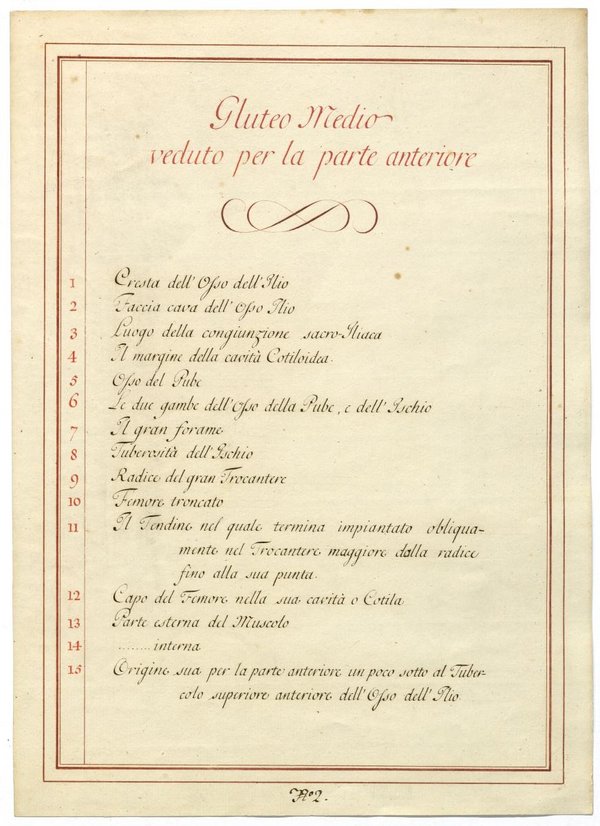 Gluteo Medio
veduto per la parte anteriore
1 Cresta dell'Osso dell'Ilio
2 Faccia cava dell'Osso Ilio
3 Luogo della congiunzione sacro-Iliaca
4 Il margine della cavità Cotiloidea.
5 Osso del Pube
6 Le due gambe dell'Osso della Pube, e dell'Ischio
7 Il gran forame
8 Tuberosità dell'Ischio
9 Radice del gran Trocantere
10 Femore troncato
11 Il Tendine nel quale termina impiantato obliqua-
mente nel Trocantere maggiore dalla radice
fino alla sua punta.
12 Capo del Femore nella sua cavità o Cotila
13 Parte esterna del Muscolo
14 ........interna
15 Origine sua per la parte anteriore un poco sotto al Tuber-
colo superiore anteriore dell'Osso dell'Ilio
No 2.